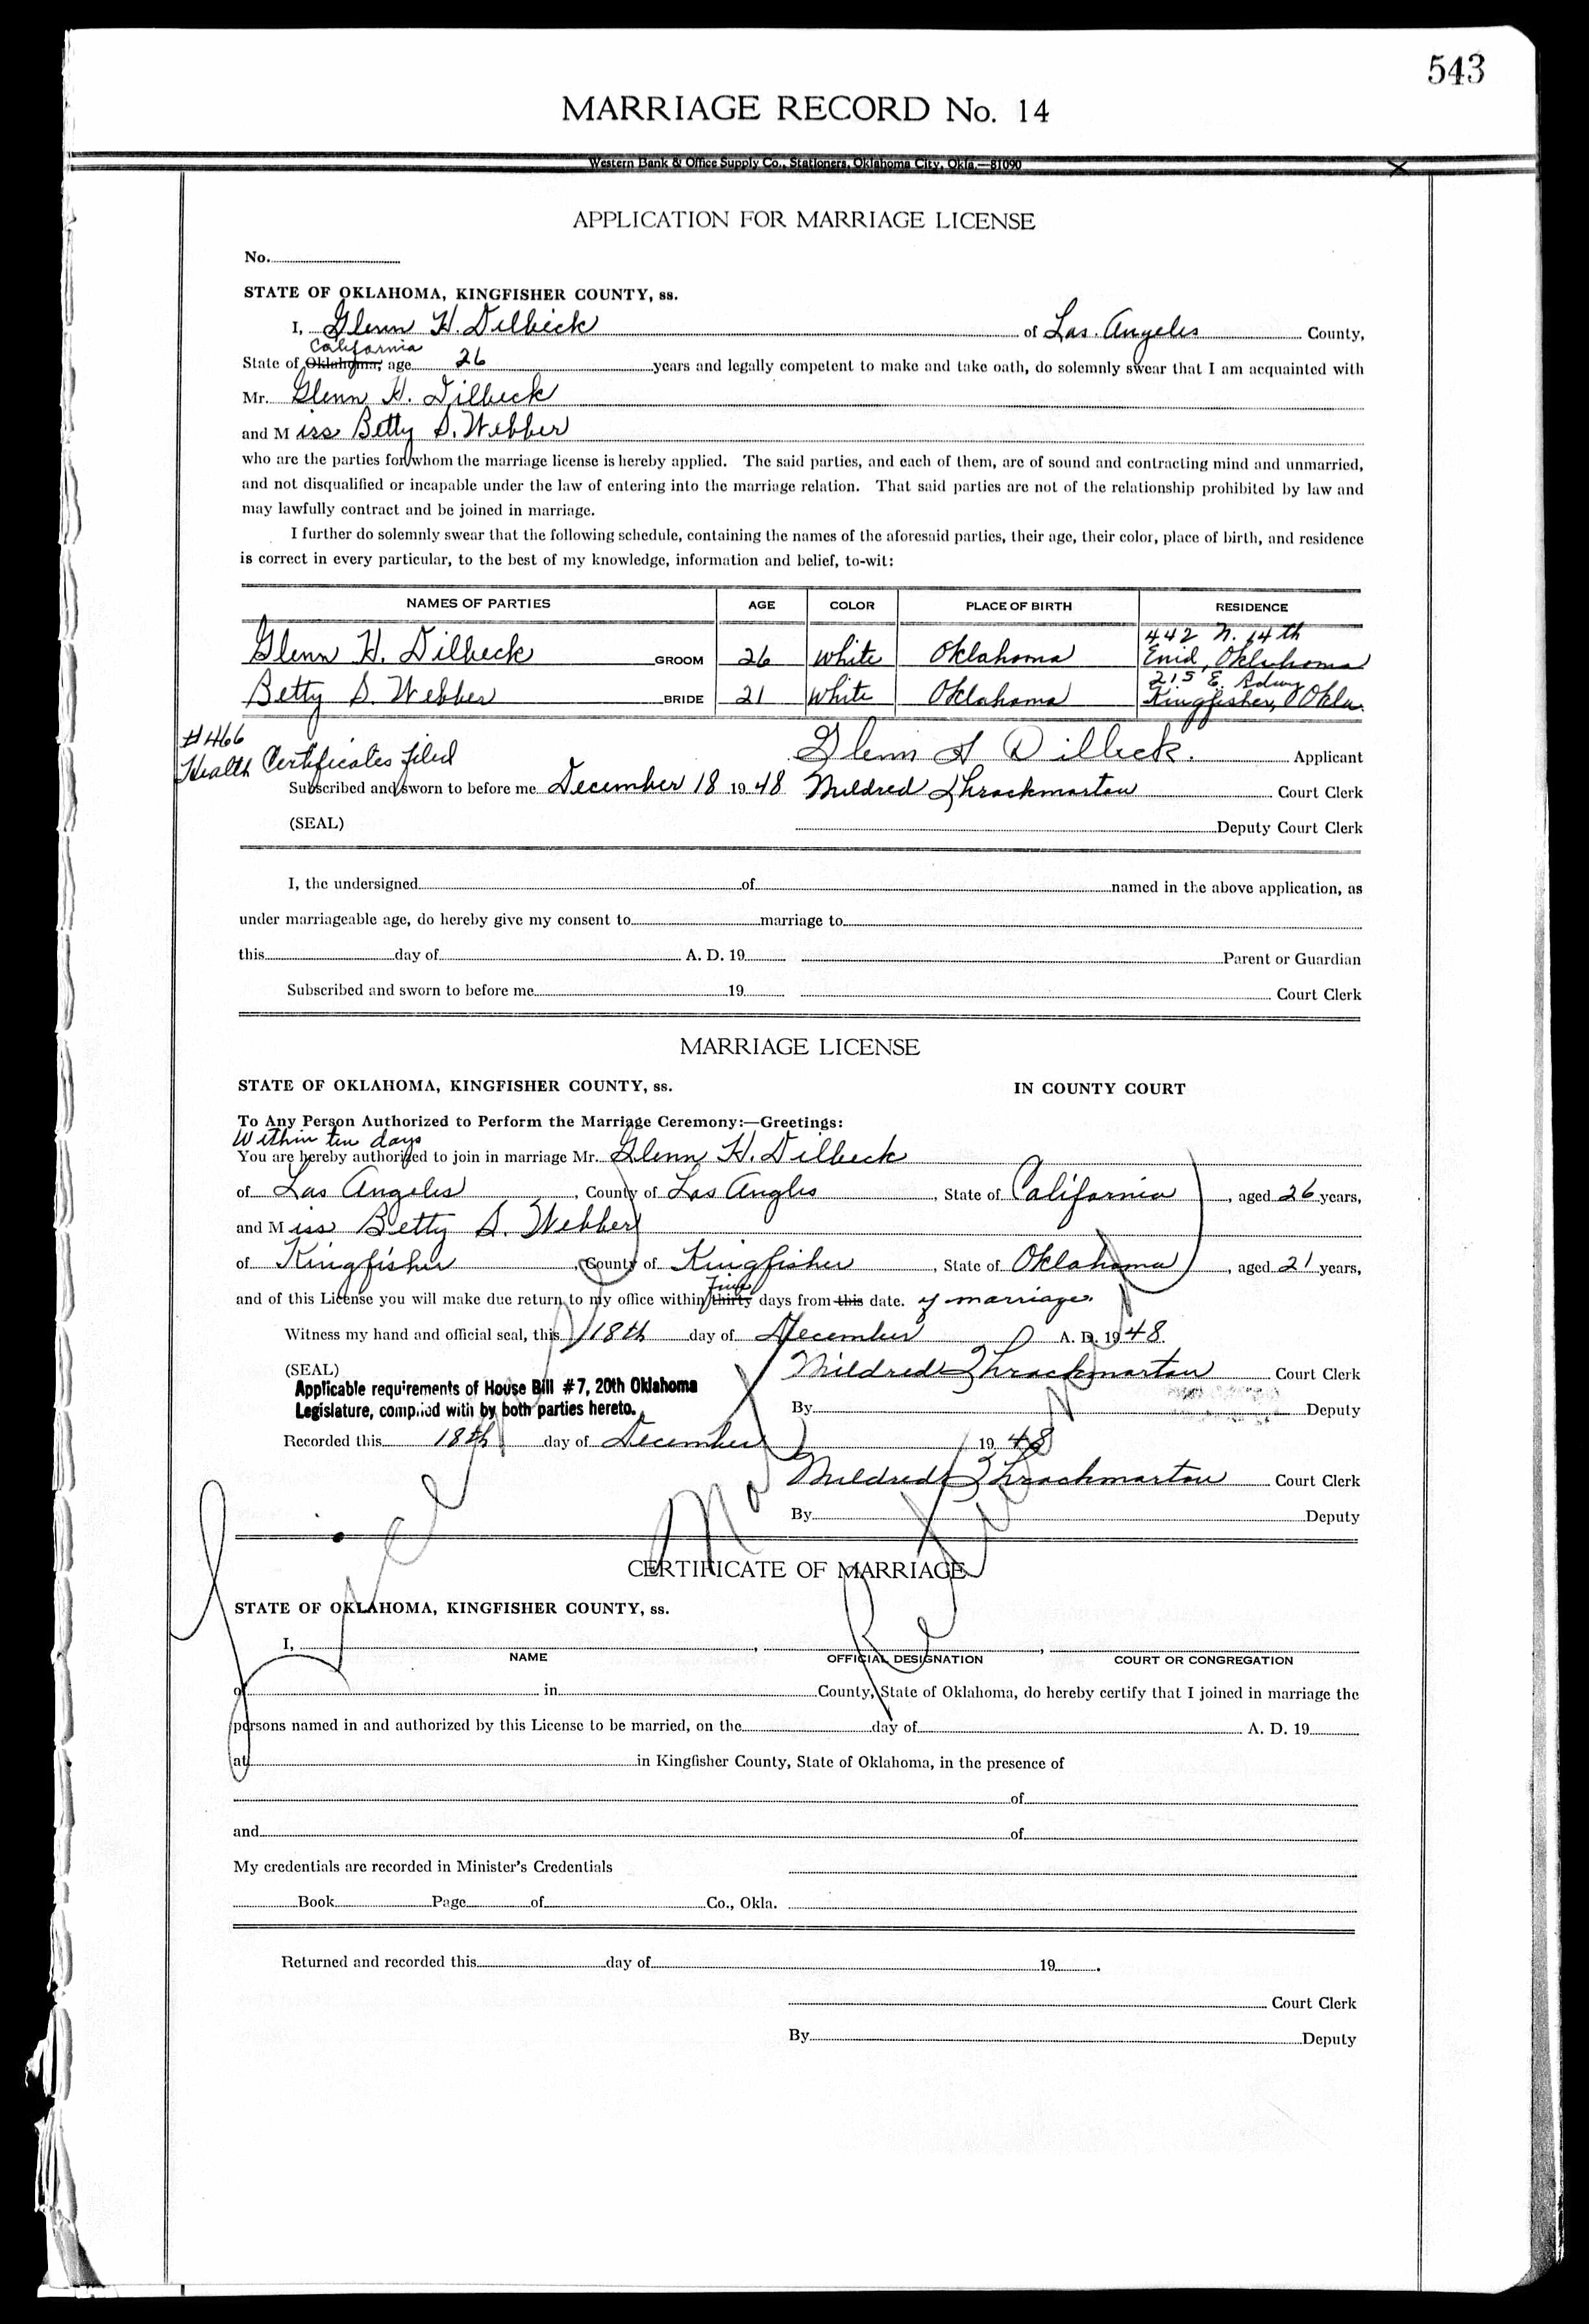 543
MARRIAGE RECORD No. 14
Western Bank & Office Supply Co., Stationers, Oklahoma City, Okla.—81090
APPLICATION FOR MARRIAGE LICENSE
No.
STATE OF OKLAHOMA, KINGFISHER COUNTY, ss.
I, Glenn H. Dilbeck of Los Angeles County,
California
State of Oklahoma, age 26 years and legally competent to make and take oath, do solemnly swear that I am acquainted with
Mr. Glenn H. Dilbeck
and Miss Betty S. Webber
who are the parties for whom the marriage license is hereby applied. The said parties, and each of them, are of sound and contracting mind and unmarried,
and not disqualified or incapable under the law of entering into the marriage relation. That said parties are not of the relationship prohibited by law and
may lawfully contract and be joined in marriage.
I further do solemnly swear that the following schedule, containing the names of the aforesaid parties, their age, their color, place of birth, and residence
is correct in every particular, to the best of my knowledge, information and belief, to-wit:
NAMES OF PARTIES AGE COLOR PLACE OF BIRTH RESIDENCE
442 N. 14th
Glenn H. Dilbeck GROOM 26 White Oklahoma Enid, Oklahoma
215 E.
Betty S. Webber BRIDE 21 White Oklahoma Kingfisher, Okla.
#466
Health Certificates filed
Glenn H Dilbeck. Applicant
Subscribed and sworn to before me December 18 1948 Mildred Throckmorton Court Clerk
(SEAL) Deputy Court Clerk
I, the undersigned of named in the above application, as
under marriageable age, do hereby give my consent to marriage to
this day of A. D. 19 Parent or Guardian
Subscribed and sworn to before me 19 Court Clerk
MARRIAGE LICENSE
STATE OF OKLAHOMA, KINGFISHER COUNTY, ss. IN COUNTY COURT
To Any Person Authorized to Perform the Marriage Ceremony:—Greetings:
Within ten days
You are hereby authorized to join in marriage Mr. Glenn H. Dilbeck
of Los Angeles, County of Los Angles, State of California, aged 26 years,
and Miss Betty S. Webber
of Kingfisher, County of Kingfisher, State of Oklahoma, aged 21 years,
Five
and of this License you will make due return to my office within thirty days from this date. of marriage.
Witness my hand and official seal, this 18th day of December A. D. 1948
(SEAL) Mildred Throckmorton Court Clerk
Applicable requirements of House Bill #7, 20th Oklahoma
Legislature, complied with by both parties hereto.
By Deputy
Recorded this 18th day of December 1948
Mildred Throckmorton Court Clerk
By Deputy
License Not Returned
CERTIFICATE OF MARRIAGE
STATE OF OKLAHOMA, KINGFISHER COUNTY, ss.
I, , ,
NAME OFFICIAL DESIGNATION COURT OR CONGREGATION
of in County, State of Oklahoma, do hereby certify that I joined in marriage the
persons named in and authorized by this License to be married, on the day of A. D. 19
at in Kingfisher County, State of Oklahoma, in the presence of
of
and of
My credentials are recorded in Minister's Credentials
Book Page of Co., Okla.
Returned and recorded this day of 19 .
Court Clerk
By Deputy